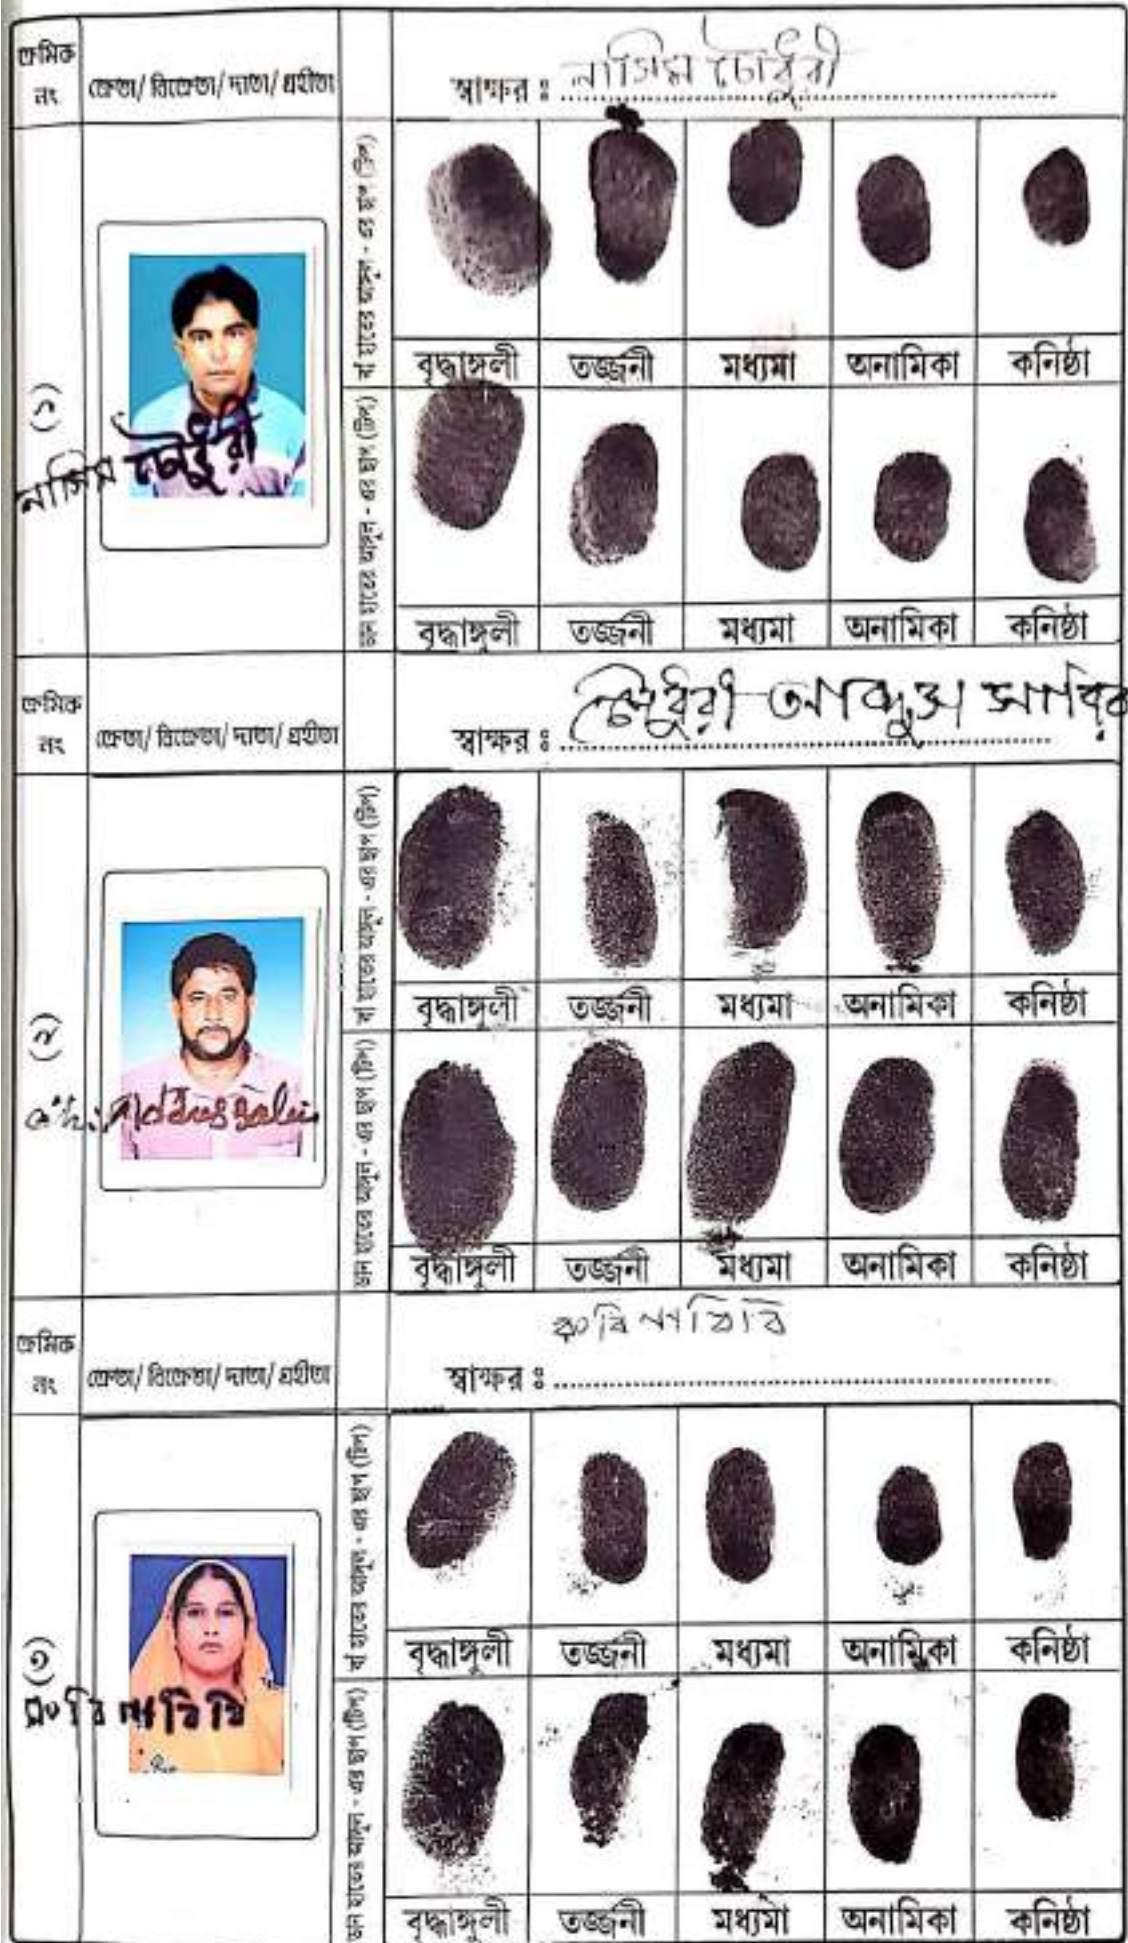 ক্রমিক নং
ক্রেতা/ বিক্রেতা/ দাতা/ গ্রহীতা
স্বাক্ষর ঃ নাসিম চৌধুরী
(১)
নাসিম চৌধুরী
বাঁ হাতের আঙ্গুল - এর ছাপ (টিপ)
বৃদ্ধাঙ্গুলী তর্জ্জনী মধ্যমা অনামিকা কনিষ্ঠা
ডান হাতের আঙ্গুল - এর ছাপ (টিপ)
বৃদ্ধাঙ্গুলী তর্জ্জনী মধ্যমা অনামিকা কনিষ্ঠা
ক্রমিক নং
ক্রেতা/ বিক্রেতা/ দাতা/ গ্রহীতা
স্বাক্ষর ঃ চৌধুরী
(২)
বাঁ হাতের আঙ্গুল - এর ছাপ (টিপ)
বৃদ্ধাঙ্গুলী তর্জ্জনী মধ্যমা অনামিকা কনিষ্ঠা
ডান হাতের আঙ্গুল - এর ছাপ (টিপ)
বৃদ্ধাঙ্গুলী তর্জ্জনী মধ্যমা অনামিকা কনিষ্ঠা
ক্রমিক নং
ক্রেতা/ বিক্রেতা/ দাতা/ গ্রহীতা
রুবিনা বিবি
স্বাক্ষর ঃ
(৩)
রুবিনা বিবি
বাঁ হাতের আঙ্গুল - এর ছাপ (টিপ)
বৃদ্ধাঙ্গুলী তর্জ্জনী মধ্যমা অনামিকা কনিষ্ঠা
ডান হাতের আঙ্গুল - এর ছাপ (টিপ)
বৃদ্ধাঙ্গুলী তর্জ্জনী মধ্যমা অনামিকা কনিষ্ঠা